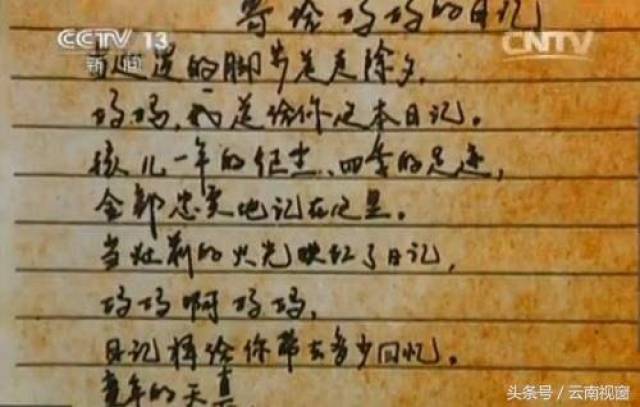 寄给妈妈的日记
CCTV 13
新闻
CNTV
当的脚步送走除夕,
妈妈,我送给你这本日记。
孩儿一年的征尘、四季的足迹,
全部忠实地记在这里。
当灶前的火光映红了日记,
妈妈啊妈妈,
日记将给你带去多少回忆。
童年的天真
头条号／云南视窗